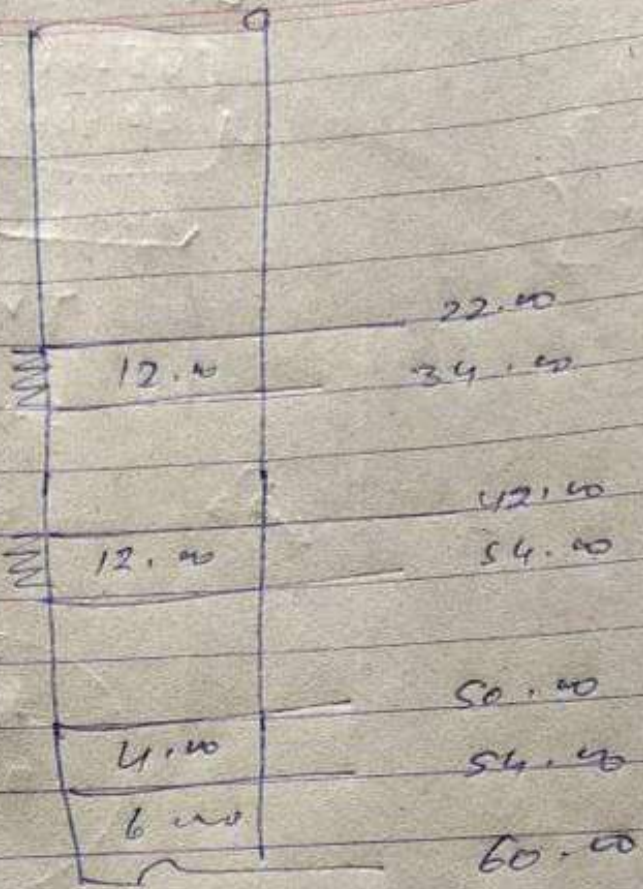 0
22.00
12.00 34.00
42.00
12.00 54.00
50.00
4.00 54.00
6.00
60.00